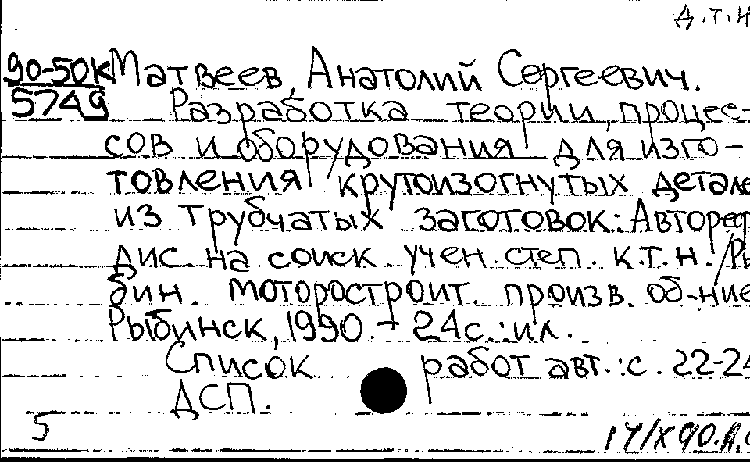 д.т.н
90-50К Матвеев, Анатолий Сергеевич.
5749 Разработка теории, процес-
сов и оборудования для изго-
товления крутоизогнутых детале
из трубчатых заготовок: Автореф
дис. на соиск. учен. степ. к.т.н. / Ры
бин. моторостроит. произв. об-ние
Рыбинск, 1990. - 24с.: ил.
Список работ авт.: с. 22-24
ДСП.
5 17/X 90.